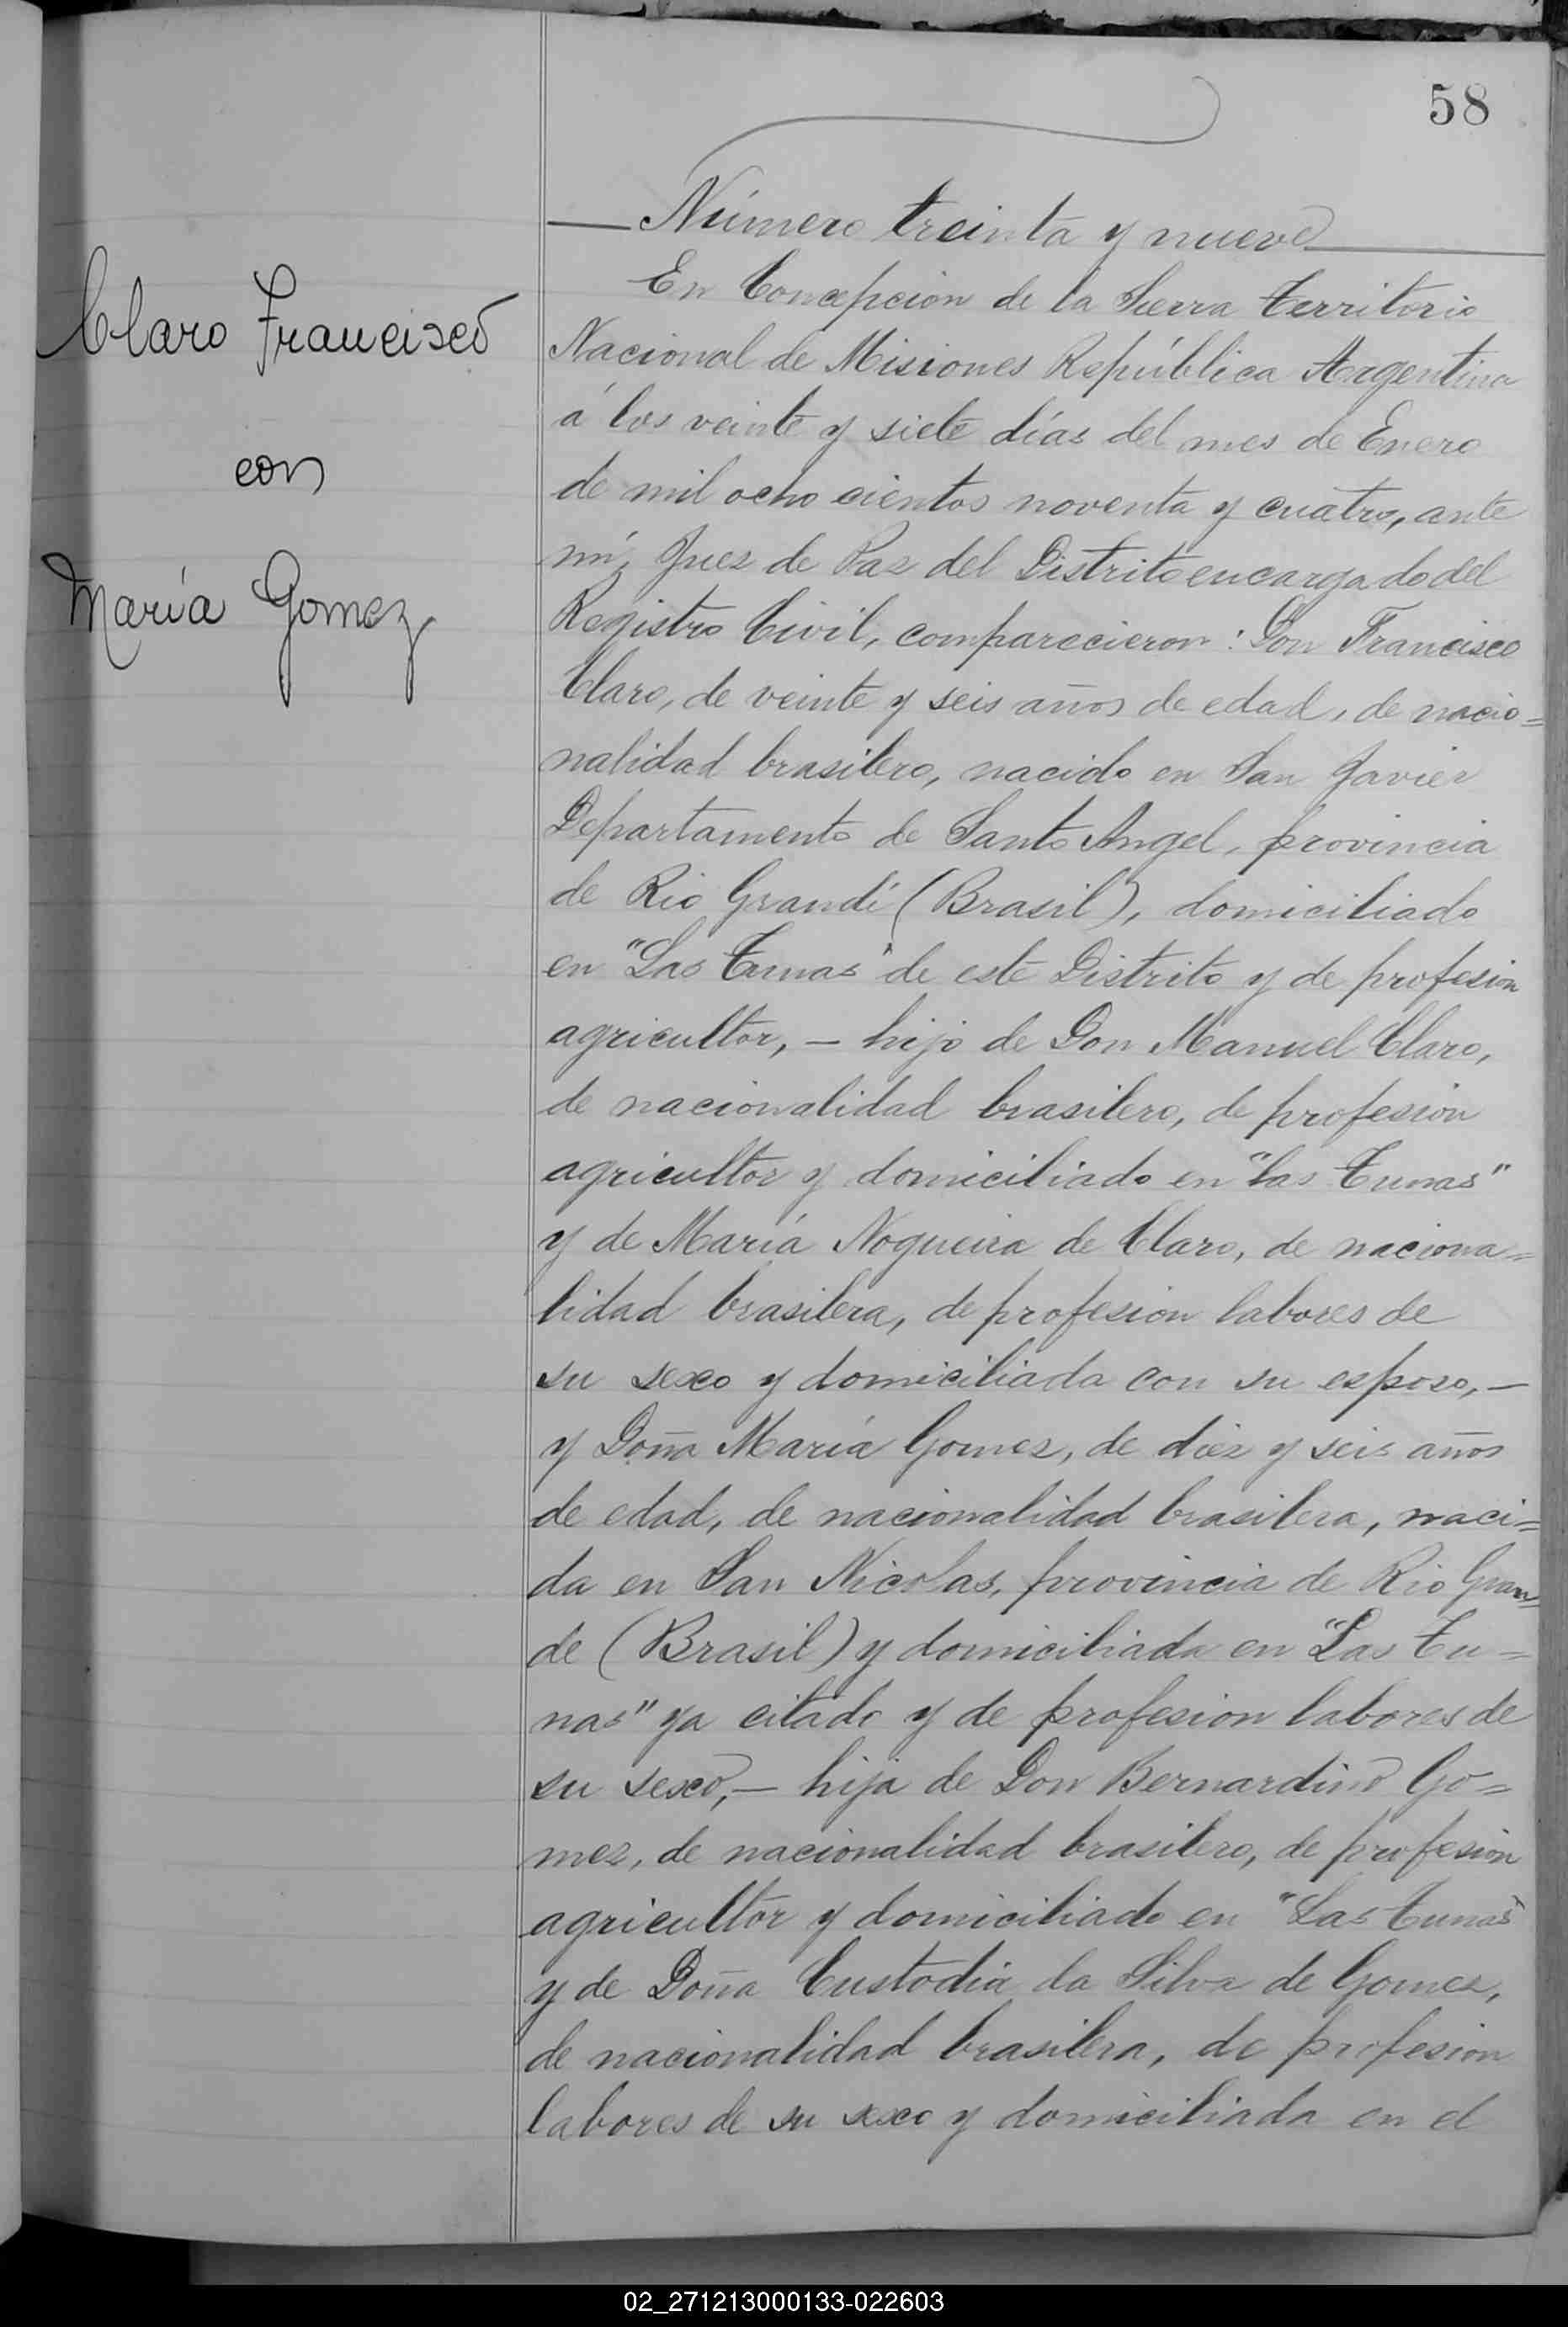 58
Claro Francisco
con
María Gomez
Número treinta y nueve
En Concepción de la Sierra Territorio
Nacional de Misiones República Argentina
á los veinte y siete días del mes de Enero
de mil ocho cientos noventa y cuatro, ante
mí, Juez de Paz del Distrito encargado del
Registro Civil, comparecieron: Don Francisco
Claro, de veinte y seis años de edad, de nacio=
nalidad brasilero, nacido en San Javier
Departamento de Santo Angel, provincia
de Rio Grandí (Brasil), domiciliado
en "Las Tunas" de este Distrito y de profesion
agricultor, — hijo de Don Manuel Claro,
de nacionalidad brasilero, de profesion
agricultor y domiciliado en "las Tunas"
y de María Nogueira de Claro, de naciona=
lidad brasilera, de profesion labores de
su sexo y domiciliada con su esposo, —
y Doña María Gomez, de diez y seis años
de edad, de nacionalidad brasilera, naci=
da en San Nicolas, provincia de Rio Gran=
de (Brasil) y domiciliada en "Las Tu=
nas" ya citado y de profesion labores de
su sexo, — hija de Don Bernardino Go=
mez, de nacionalidad brasilero, de profesion
agricultor y domiciliado en "Las Tunas"
y de Doña Custodia da Silva de Gomez,
de nacionalidad brasilera, de profesion
labores de su sexo y domiciliada en el
02_271213000133-022603